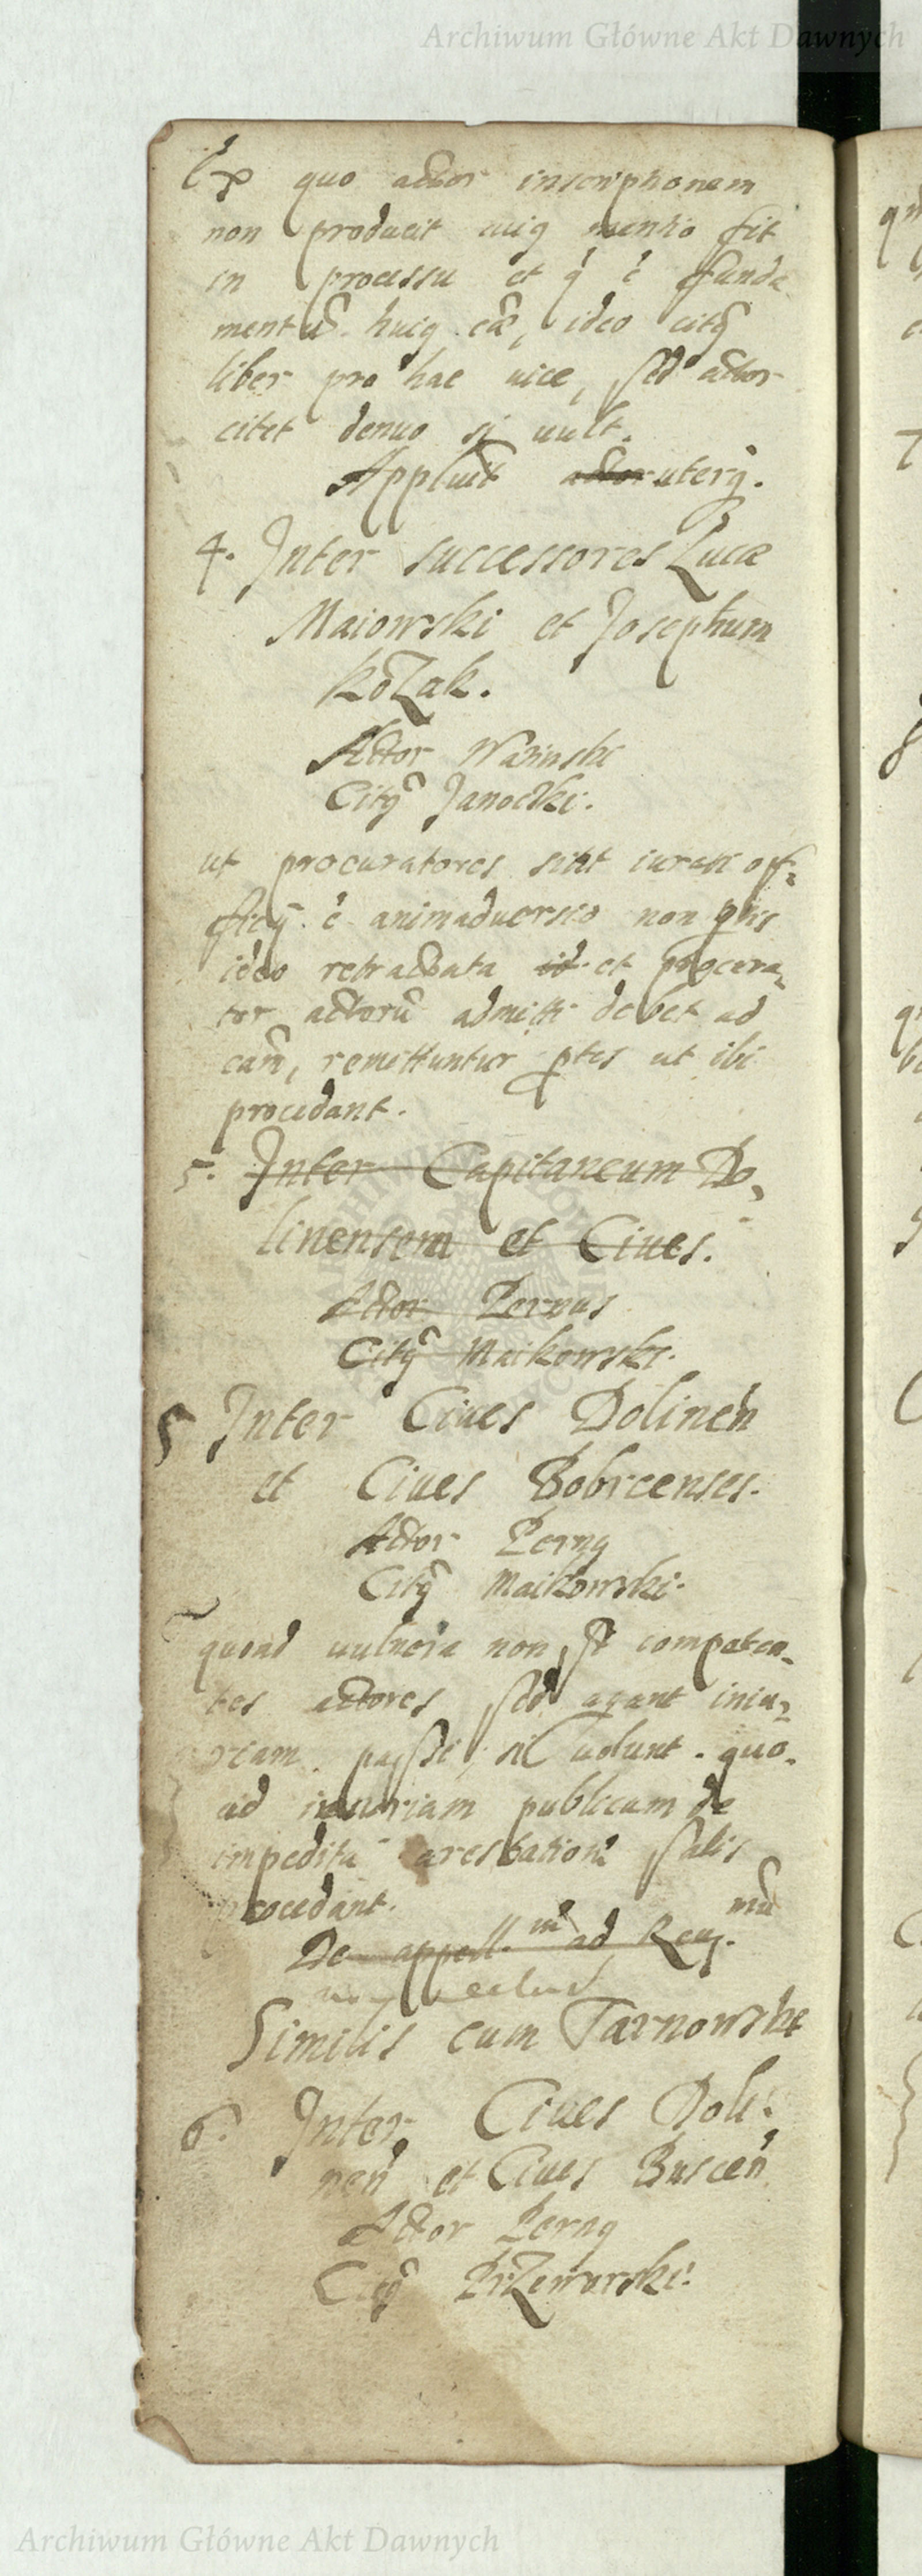 Archiwum Główne Akt Dawnych
Ex quo actor inscriptionem
non producit cuiq mentio fit
in processu et q̃ ẽ funda
mentũ huiq cã, ideo citq̃
liber pro hac uice, sed actor
citet denuo si uult.
Appluit actor uterq.
4. Inter successores Lucæ
Maiowski et Josephum
Kozak.
Actor Wazinski
Citq̃ Janoczki.
ut procuratores sint iurati of-
ficij ẽ animaduersio non ptis
ideo retractata id et procura-
tor actorũ admitti debet ad
cãm, remittuntur ptes ut ibi
procedant.
5. Inter Capitaneum Do-
linensem et Ciues.
Actor Pernus
Citq̃ Maikowski.
5 Inter Ciues Dolineñ
et Ciues Bobrcenses.
Actor Pernq
Citq̃ Maikowski.
quoad uulnera non st competen-
tes actores sed agant iniu-
riam passi, si uolunt. quo-
ad iniuriam publicam de
impedita arestatione salis
procedant.
De appell. ad Reg. mũ
non
Similis cum Tarnowski
6. Inter Ciues Doli-
neñ et Ciues Busceñ
Actor Pernq
Citq̃ Przeworski.
Archiwum Główne Akt Dawnych